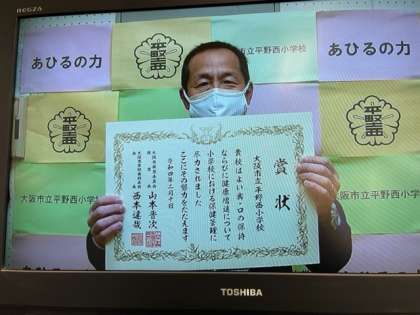 REGZA
あひるの力
大阪市立平野西小学校
あひるの力
大阪市立平野西小学校
大阪市立平野西小学校
賞状
大阪市立平野西小学校
貴校はよい歯・口の保持
ならびに健康増進について
小学校における保健管理に
尽力されました
ここにその努力をたたえます
令和四年二月十日
山本晋次
西本達哉
TOSHIBA